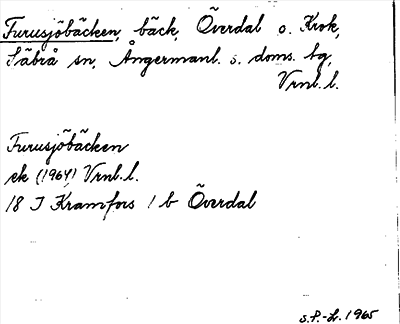 Furusjöbäcken, bäck, Överdal o. Krok,
Säbrå sn, Ångermanl. s. doms. bg,
Vrnl. l.
Furusjöbäcken
ek (1964) Vrnl. l.
18 I Kramfors 1 b Överdal
S.P.-L. 1965